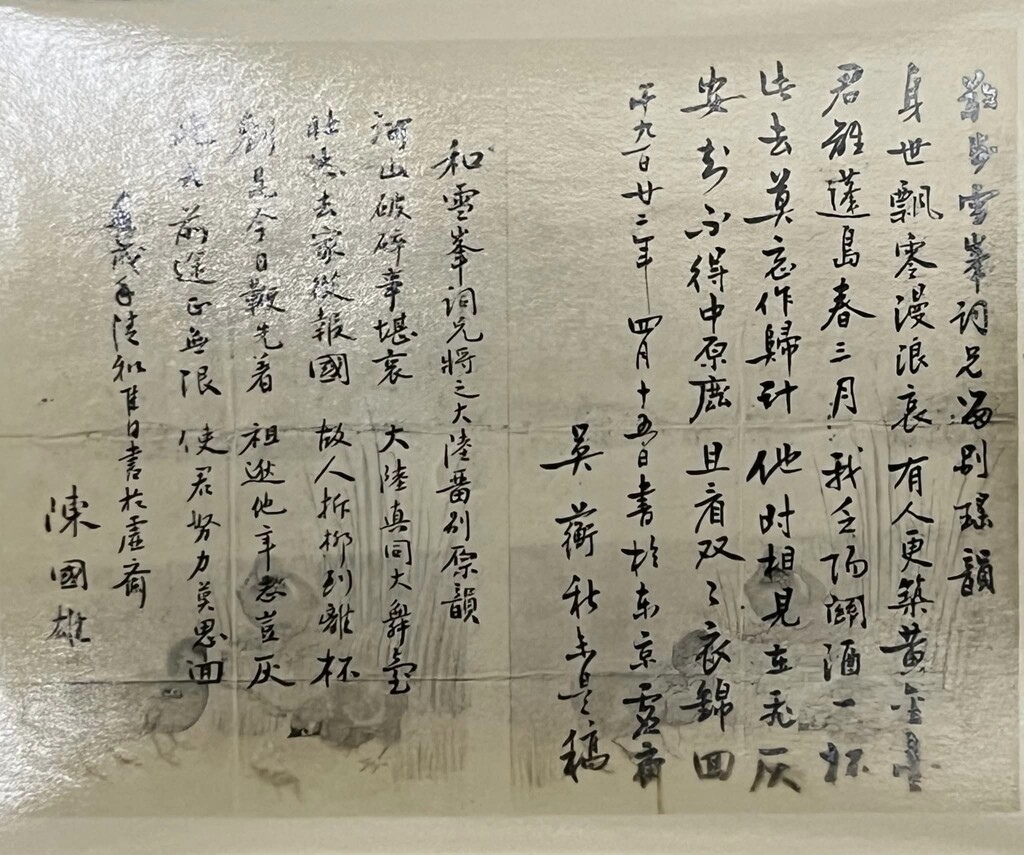 敬步雪峯詞兄留別瑤韻
身世飄零漫浪哀 有人更築黃金臺
君離蓬島春三月 我乏陽關酒一杯
此去莫忘作歸計 他時相見在飛灰
安知不得中原鹿 且看双々衣錦回
一千九百廿二年 四月十五日書於東京虛齋
吳蘅秋未是稿
和雪峯詞兄將之大陸留別原韻
河山破碎事堪哀 大陸真同大舞臺
去家後報國 故人折柳到離杯
劉是今日鞭先着 祖逖他年
前途正無限 使君努力莫思回
書於虛齋
陳國雄